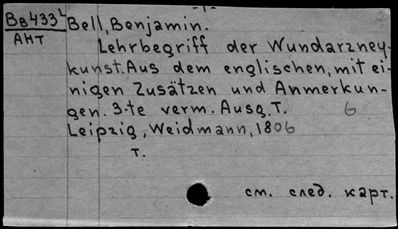 - 1 -
Вв433² Bell, Benjamin.
АНТ
Lehrbegriff der Wundarzney-
kunst. Aus dem englischen, mit ei-
nigen Zusätzen und Anmerkun-
gen. 3-te verm. Ausg. T. 6
Leipzig, Weidmann, 1806
T.
см. след. карт.